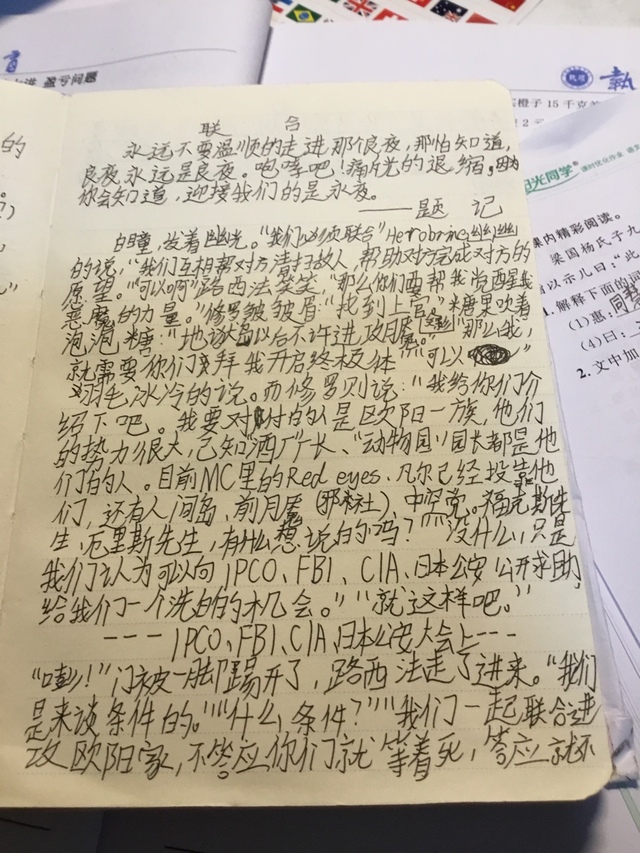 盈亏问题
的
联 合
永远不要温顺的走进那个良夜，那怕知道，
良夜永远是良夜。咆哮吧！痛斥光的退缩，因为
你会知道，迎接我们的是永夜。
——题 记
白瞳，发着幽光。“我们必须联合”Herobrine幽幽
的说，“我们互相帮对方清扫敌人，帮助对方完成对方的
愿望。”“可以啊”路西法笑笑，“那么你们要帮我唤醒我
恶魔的力量。”修罗皱皱眉：“找到上官。”糖果吹着
泡泡糖：“地该岛以后不许进攻月”“那么我，
就需要你们来拜我开启终极体”“可以”
羽毛冰冷的说。而修罗则说：“我给你们介
绍下吧。我要对付的人是欧阳一族，他们
的势力很大，已知“酒厂”厂长、“动物园”园长都是他
们的人。目前MC里的Red eyes.凡尔已经投靠他
们，还有人间岛，前月(邪社)，中坚党。福克斯先
生，厄里斯先生，有什么想说的吗？”“没什么，只是
我们认为可以向IPCO、FBI、CIA、日本公安公开求助，
给我们一个洗白的机会。”“就这样吧。”
---IPCO、FBI、CIA、日本公安大会上---
“嘭！”门被一脚踢开了，路西法走了进来。“我们
是来谈条件的。”“什么条件？”“我们一起联合进
攻欧阳家，不答应你们就等着死，答应就还
橙子15千克
2元
阳光同学
课时优化作业
课内精彩阅读。
梁国杨氏子九
以示儿曰：“此
1. 解释下面的
(1)惠：
(4)曰：
2. 文中加